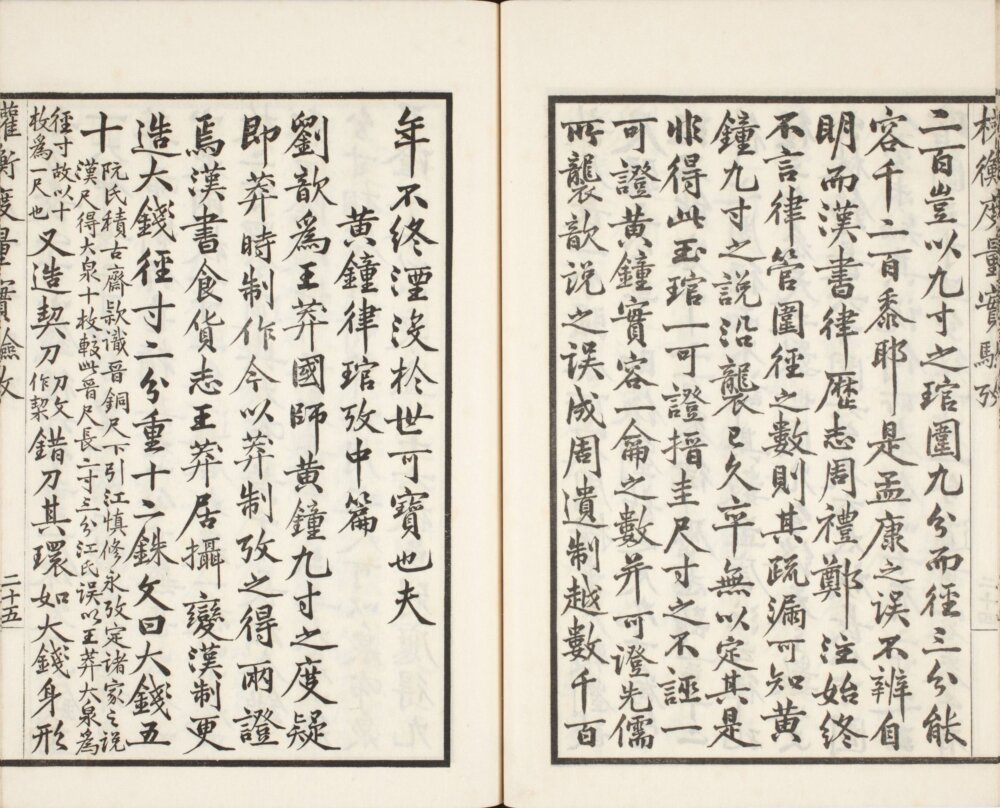 權衡度量實驗攷
二百豈以九寸之琯圍九分而徑三分能
容千二百黍耶是孟康之误不辨自
明而漢書律歷志周禮鄭注始終
不言律管圍徑之數則其疏漏可知黃
鐘九寸之說沿襲已久卒無以定其是
非得此玉琯一可證搢圭尺寸之不誣一
可證黃鐘實容一龠之數并可證先儒
所襲歆说之误成周遺制越數千百
年不終湮没於世可寶也夫
黃鐘律琯攷中篇
劉歆爲王莽國師黃鐘九寸之度疑
即莽時制作今以莽制攷之得兩證
焉漢書食貨志王莽居攝變漢制更
造大錢徑寸二分重十二銖文曰大錢五
十
阮氏積古齋款識晉銅尺下引江慎修永攷定諸家之説
漢尺得大泉十枚較此晉尺長二寸三分江氏误以王莽大泉爲
徑寸故以十
枚爲一尺也
又造契刀
刀文
作栔
錯刀其環如大錢身形
權衡度量實驗攷
二十五